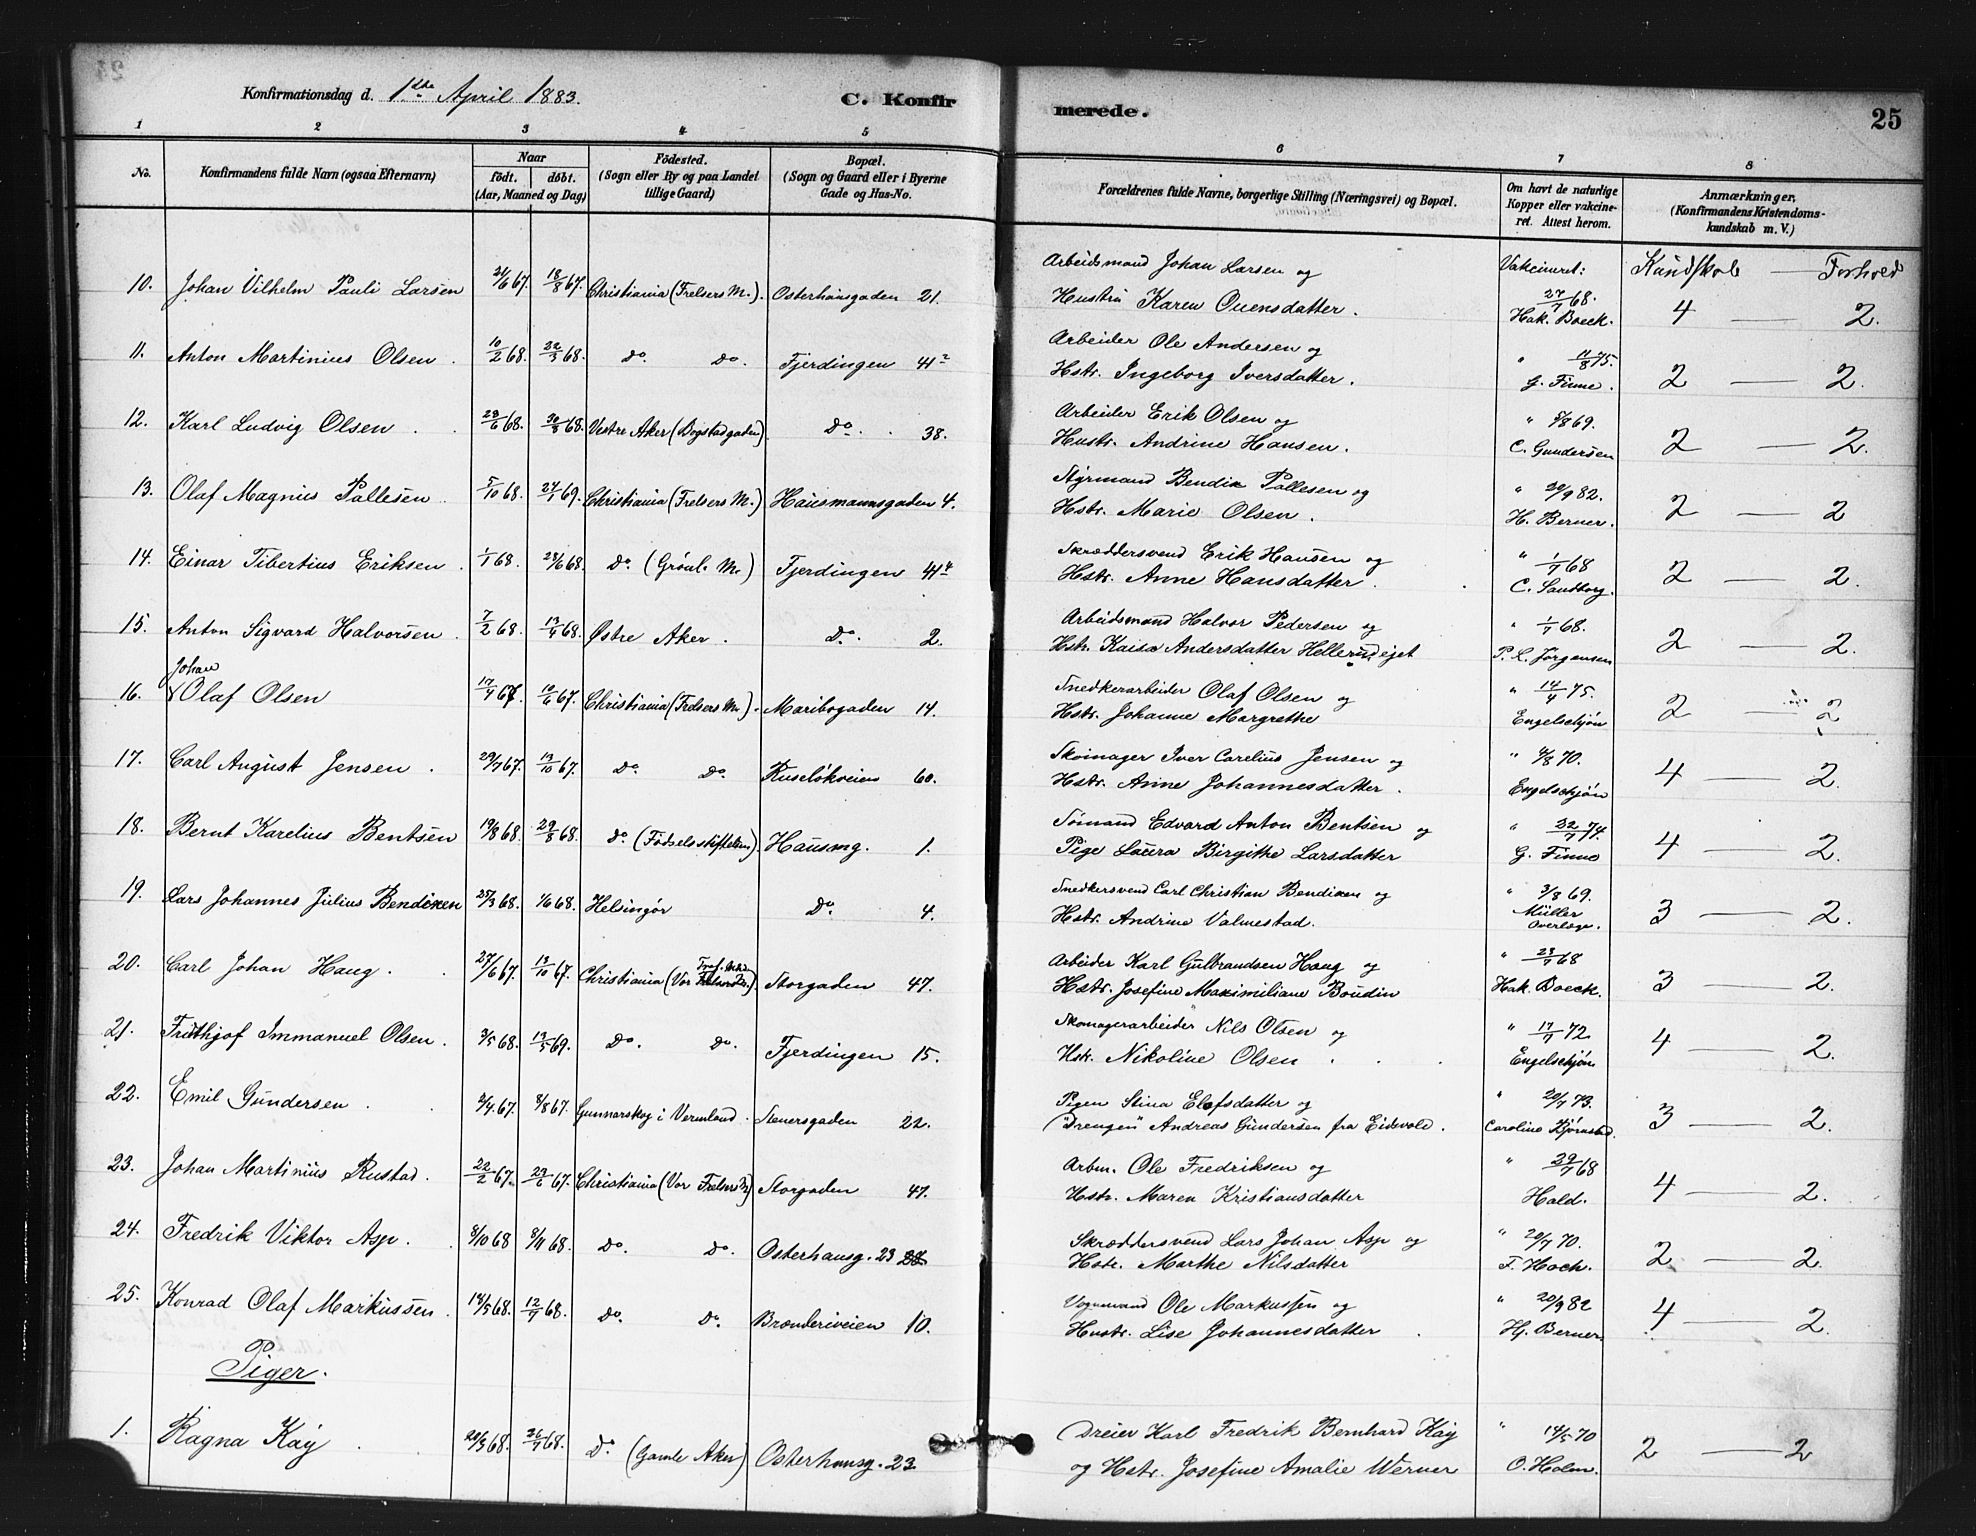 Konfirmationsdag d. 1ste April 1883. C. Konfirmerede. 25
1 2 3 4 5 6 7 8
No. Konfirmandens fulde Navn (ogsaa Efternavn) Naar födt. döbt. (Aar, Maaned og Dag) Födested. (Sogn eller By og paa Landet tillige Gaard) Bopæl. (Sogn og Gaard eller i Byerne Gade og Hus-No. Forældrenes fulde Navne, borgerlige Stilling (Næringsvei) og Bopæl. Om havt de naturlige Kopper eller vakcineret. Attest herom. Anmærkninger, (Konfirmandens Kristendomskundskab m. V.)
Kundskab — Forhold
10. Johan Vilhelm Pauli Larsen 21/6 67. 18/8 67. Christiania (Frelsers M.). Osterhausgaden 21. Arbeidsmand Johan Larsen og Hustru Karen Ouensdatter. Vakcineret: 27/7 68. Hak. Boeck. 4 — 2.
11. Anton Martinius Olsen. 10/2 68. 22/3 68. Do. Do. Fjerdingen 41² Arbeider Ole Andersen og Hstr. Ingeborg Iversdatter. " 11/8 75. G. Finne. 2 — 2.
12. Karl Ludvig Olsen. 28/6 68. 30/8 68. Vestre Aker (Bogstadgaden). Do. 38. Arbeider Erik Olsen og Hustr. Andrine Hansen. " 5/8 69. C. Gundersen 2 — 2.
13. Olaf Magnius Pallesen. 5/10 68. 24/1 69. Christiania (Frelsers M.). Hausmannsgaden 4. Styrmand Bendix Pallesen og Hstr. Marie Olsen. " 20/9 82. H. Berner. 2 — 2
14. Einar Tibertius Eriksen. 1/1 68. 28/6 68. Do. (Grönl. M.) Fjerdingen 41⁴ Skræddersvend Erik Hansen og Hstr. Anne Hansdatter. " 1/7 68 C. Sandborg. 2 — 2.
15. Anton Sigvard Halvorsen. 7/2 68. 13/4 68. Østre Aker. Do. 2. Arbeidsmand Halvor Pedersen og Hstr. Kaisa Andersdatter Hellerudejet " 1/7 68. P. L. Jørgensen 2 — 2.
16. Johan Olaf Olsen 17/4 67. 10/6 67. Christiania (Frelsers M.). Maribogaden 14. Snedkerarbeider Olaf Olsen og Hstr. Johanne Margrethe " 14/4 75. Engelschjøn 2 — 2
17. Carl August Jensen. 29/7 67. 13/10 67. Do. Do. Ruseløkveien 60. Skomager Iver Carelius Jensen og Hstr. Anne Johannesdatter. " 4/8 70. Engelschjøn 4 — 2.
18. Bernt Karelius Bentsen 19/8 68. 29/8 68. Do. (Fødselsstiftelsen). Hausmg. 1. Sømand Edvard Anton Bentsen og Pige Laura Birgithe Larsdatter " 22/7 74. G. Finne 4 — 2.
19. Lars Johannes Julius Bendixen 25/3 68. 1/6 68. Helsingør Do. 4. Snedkersvend Carl Christian Bendixen og Hstr. Andrine Valmestad. " 3/8 69. Müller Overlæge. 3 — 2.
20. Carl Johan Haug. 27/6 67. 13/10 67. Christiania (Vor Storgaden 47. Arbeider Karl Gulbrandsen Haug og Hstr. Josefine Maximiliane Boudin " 23/7 68 Hak. Boeck. 3 — 2.
21. Frithjof Immanuel Olsen. 3/5 68. 13/5 69. Do. Do. Fjerdingen 15. Skomagerarbeider Nils Olsen og Hstr. Nikoline Olsen. " 17/7 72 Engelschjøn 4 — 2.
22. Emil Gundersen. 2/4 67. 8/8 67. Gunnarskog i Vermland. Stenersgaden 22. Pigen Stina Elofsdatter og "Drengen" Andreas Gundersen fra Eidsvold. " 20/7 73. Caroline Bjørnstad. 3 — 2.
23. Johan Martinius Rustad. 22/2 67. 23/6 67. Christiania (Vor Frelsers) Storgaden 47. Arbm. Ole Fredriksen og Hstr. Maren Kristiansdatter " 29/7 68 Hald. 4 — 2.
24. Fredrik Viktor Asp. 8/10 68 8/11 68. Do. Do. Osterhausg. 23 Skræddersvend Lars Johan Asp og Hstr. Marthe Nilsdatter " 20/7 70. F. Hoch. 2 — 2.
25. Konrad Olaf Markussen. 18/5 68. 12/7 68. Do. Do. Brænderiveien 10. Vognmand Ole Markussen og Hustr. Lise Johannesdatter. " 20/9 82 Hj. Berner 4 — 2.
Piger.
1. Ragna Kay. 20/3 68. 26/7 68. Do. (Gamle Aker) Osterhausg. 23 Dreier Karl Fredrik Bernhard Kay og Hstr. Josefine Amalie Werner " 14/5 70 O. Holm. 2 — 2